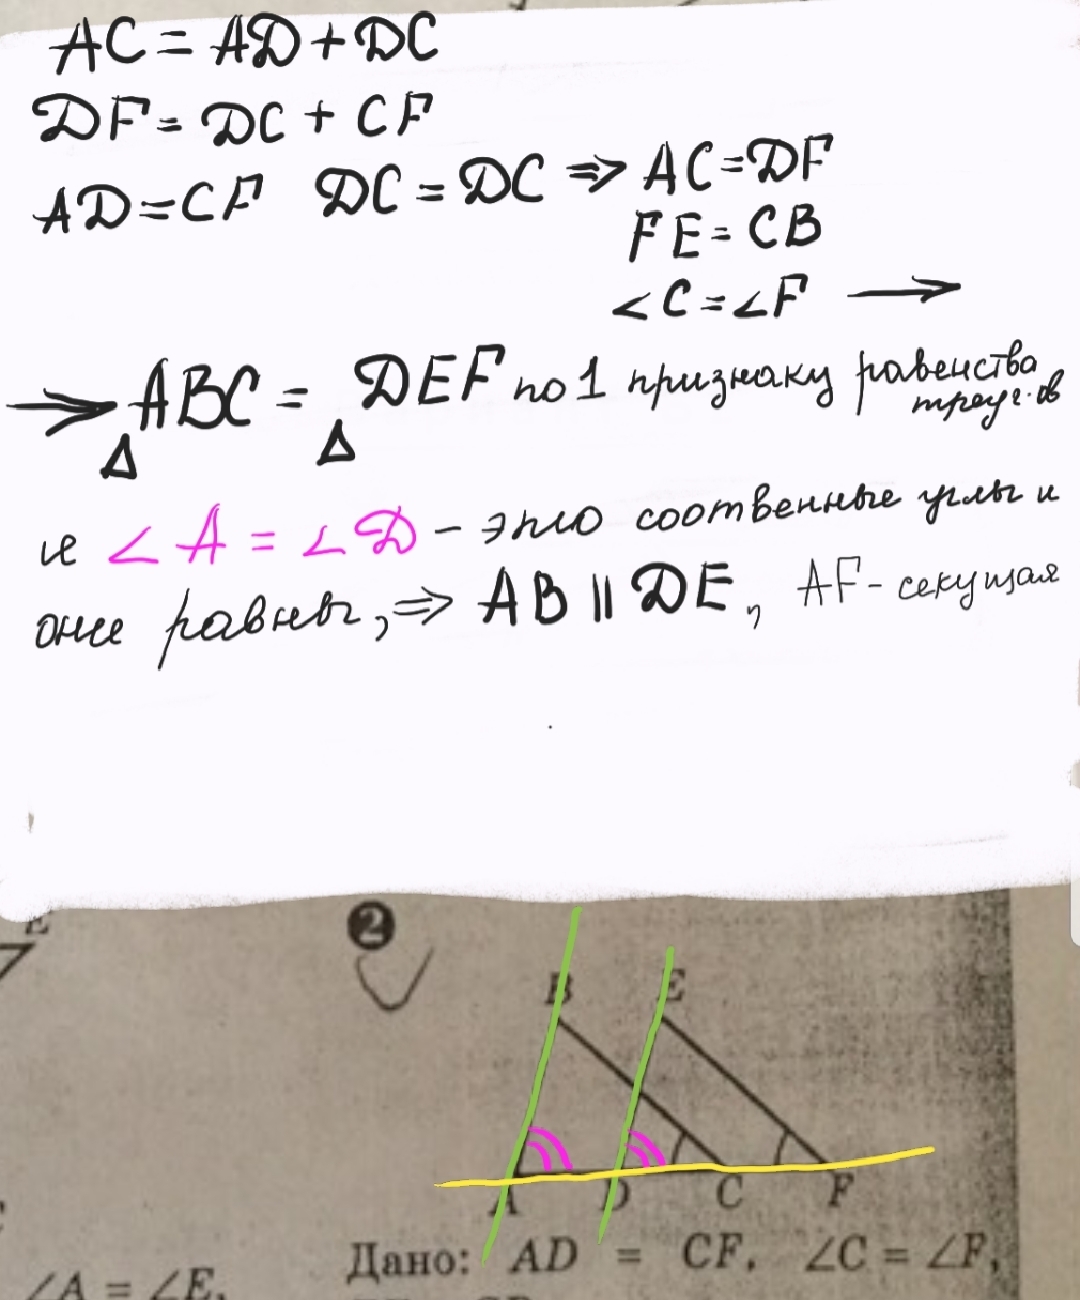 AC = AD + DC
DF = DC + CF
AD = CF DC = DC ⇒ AC = DF
FE = CB
∠C = ∠F →
→ ABC = DEF по 1 признаку равенства
Δ Δ треуг-ов
и ∠A = ∠D - это соотвенные углы и
они равны, ⇒ AB || DE, AF - секущая
E
2
B E
A D C F
Дано: AD = CF, ∠C = ∠F,
∠A = ∠E,